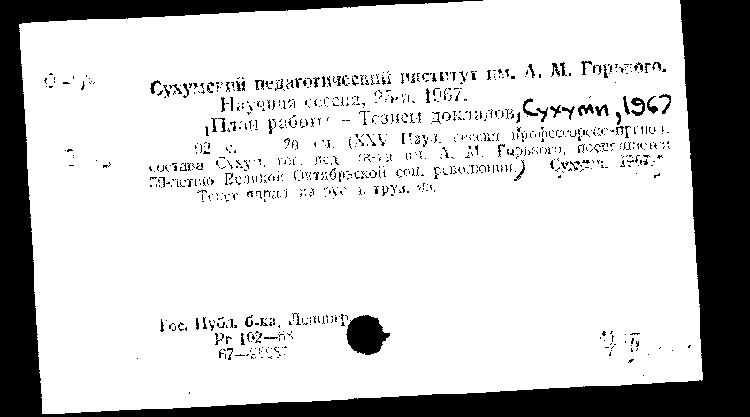 Сухумский педагогический институт им. А. М. Горького.
Научная сессия, 25-я. 1967.
План работы – Тезисы докладов, Сухуми, 1967
92 с. 20 см. (XXV Науч. сессия профессорско-препод.
состава Сухум. гос. пед. ин-та им. А. М. Горького, посвященная
50-летию Великой Октябрьской соц. революции.) Сухуми. 1967.
Текст парал. на рус. и груз. яз.
Гос. Публ. б-ка, Ленингр.
Рг 102—68
67—